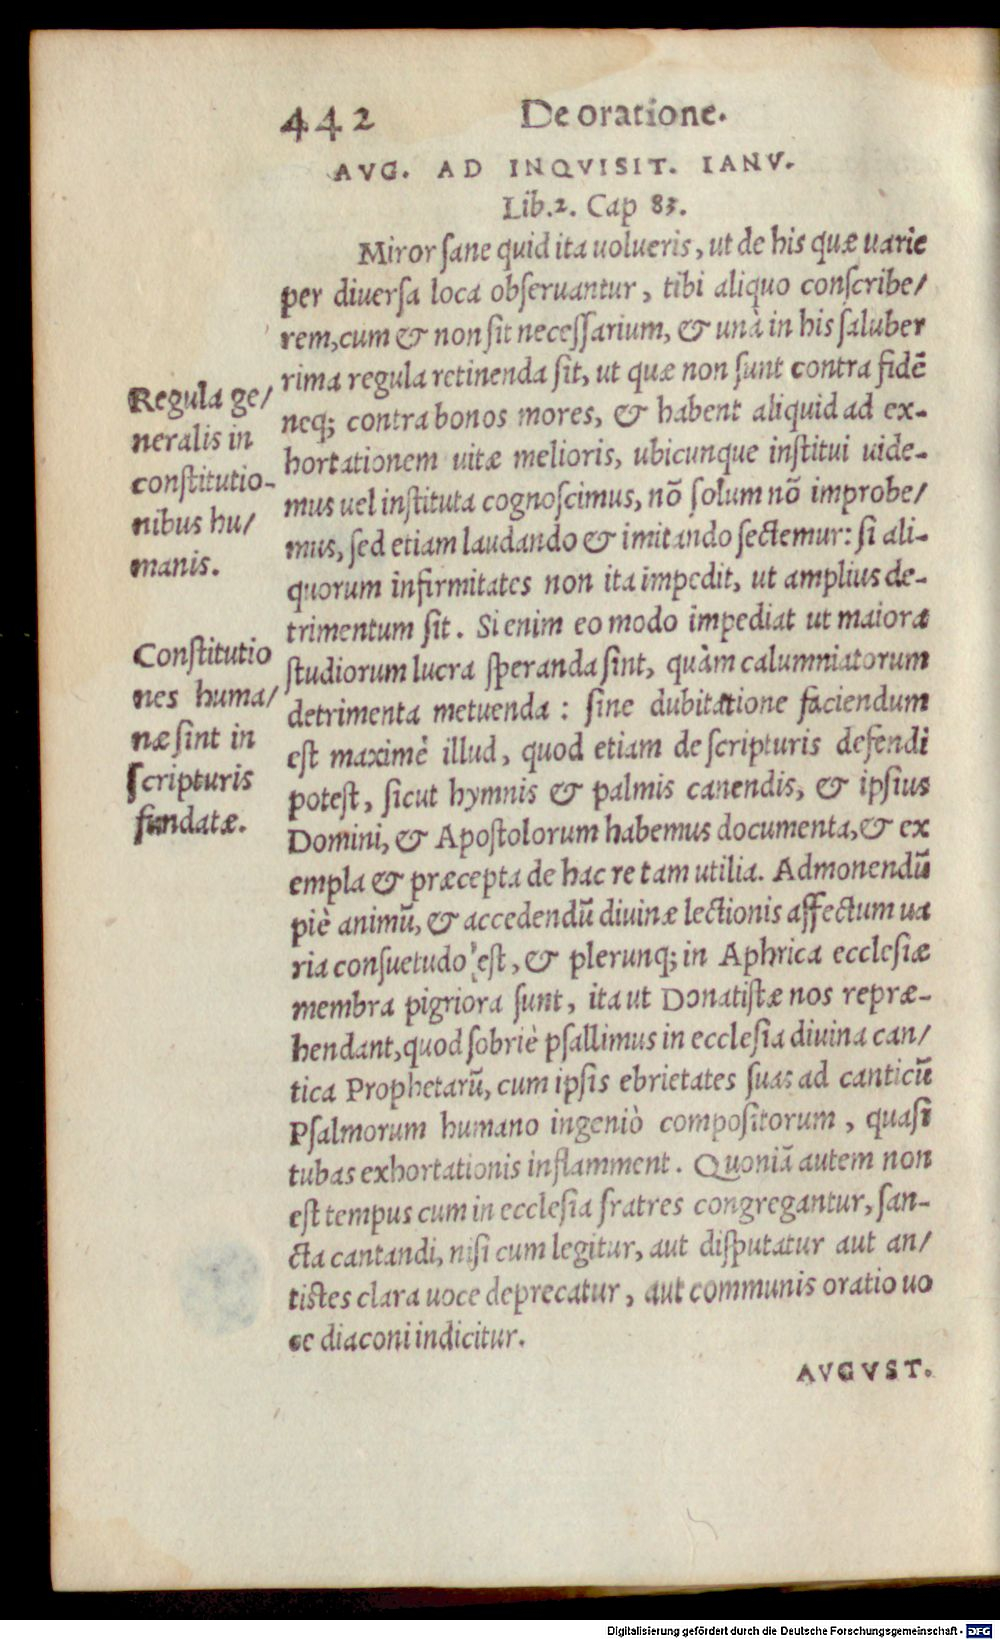 442 De oratione.
AVG. AD INQVISIT. IANV.
Lib.2. Cap 83.
Miror ſane quid ita uolueris, ut de his quæ uarie
per diuerſa loca obſeruantur, tibi aliquo conſcribe/
rem, cum & non ſit neceſſarium, & unà in his ſaluber
rima regula retinenda ſit, ut quæ non ſunt contra fidē
neq; contra bonos mores, & habent aliquid ad ex-
hortationem uitæ melioris, ubicunque inſtitui uide-
mus uel inſtituta cognoſcimus, nō ſolum nō improbe/
mus, ſed etiam laudando & imitando ſectemur: ſi ali-
quorum infirmitates non ita impedit, ut amplius de-
trimentum ſit. Si enim eo modo impediat ut maiora
ſtudiorum lucra ſperanda ſint, quàm calumniatorum
detrimenta metuenda : ſine dubitatione faciendum
eſt maximè illud, quod etiam de ſcripturis defendi
poteſt, ſicut hymnis & palmis canendis, & ipſius
Domini, & Apoſtolorum habemus documenta, & ex
empla & præcepta de hac re tam utilia. Admonendū
piè animū, & accedendū diuinæ lectionis affectum ua
ria conſuetudo eſt, & plerunq; in Aphrica eccleſiæ
membra pigriora ſunt, ita ut Donatiſtæ nos repræ-
hendant, quod ſobriè pſallimus in eccleſia diuina can/
tica Prophetarū, cum ipſis ebrietates ſuas ad canticū
Pſalmorum humano ingeniò compoſitorum, quaſi
tubas exhortationis inflamment. Quoniā autem non
eſt tempus cum in eccleſia fratres congregantur, ſan-
cta cantandi, niſi cum legitur, aut diſputatur aut an/
tiſtes clara uoce deprecatur, aut communis oratio uo
ce diaconi indicitur.
AVGVST.
Regula ge/
neralis in
conſtitutio-
nibus hu/
manis.
Conſtitutio
nes huma/
næ ſint in
ſcripturis
fundatæ.
Digitalisierung gefördert durch die Deutsche Forschungsgemeinschaft - DFG